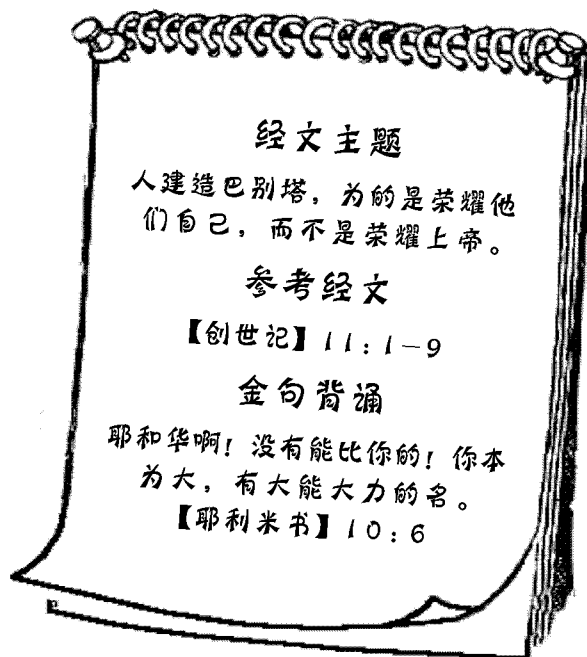 经文主题
人建造巴别塔，为的是荣耀他
们自己，而不是荣耀上帝。
参考经文
【创世记】11：1－9
金句背诵
耶和华啊！没有能比你的！你本
为大，有大能大力的名。
【耶利米书】10：6